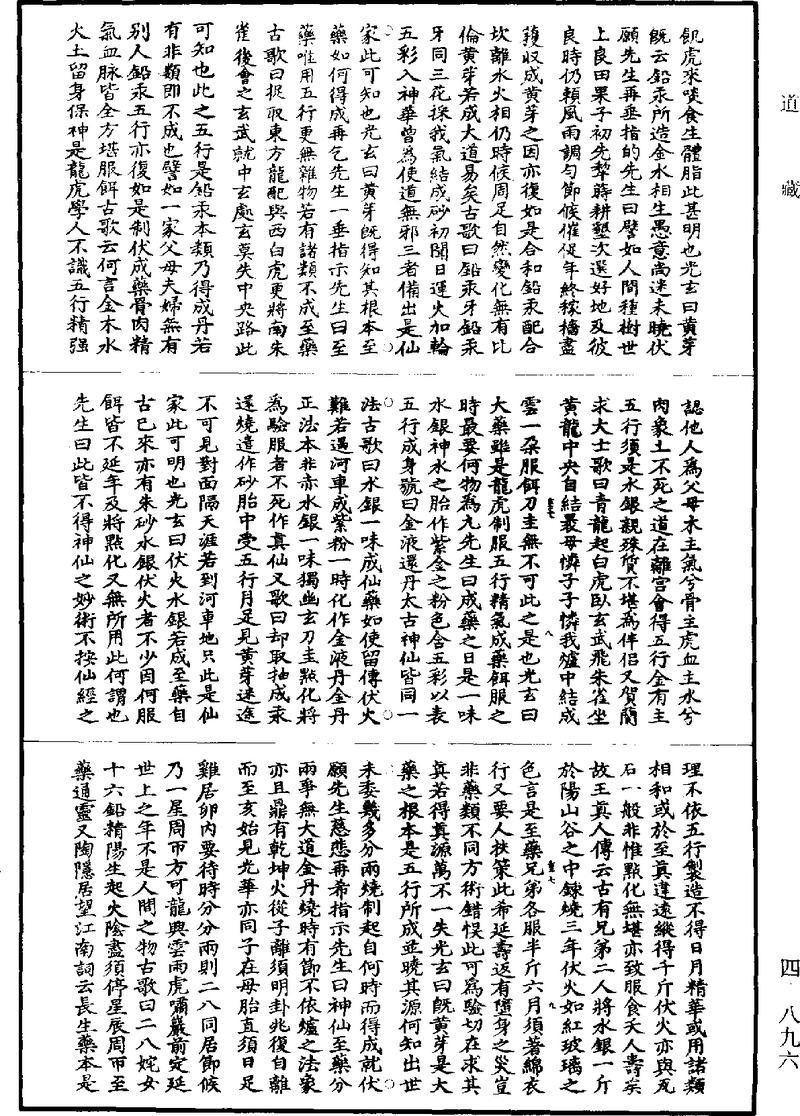 道藏
飢虎來啖食生體脂此甚明也光玄曰黃芽
既云鉛汞所造金水相生愚意尚迷未曉伏
願先生再垂指的先生曰譬如人間種樹世
上良田果子初先犁蒔耕墾次選好地及彼
良時仍賴風雨調勻節候催促年終稼穡盡
獲收成黃芽之因亦復如是合和鉛汞配合
坎離水火相仍時候周足自然變化無有比
倫黃芽若成大道易矣古歌曰鉛汞牙鉛汞
牙同三花採我氣結成砂初開日運火加輪
五彩入神華曾為使道無邪三者備出是仙
家此可知也光玄曰黃芽既得知其根本至
藥如何得成再乞先生一垂指示先生曰至
藥唯用五行更無雜物若有諸類不成至藥
古歌曰捉取東方龍配與西白虎更將南朱
雀後會之玄武就中玄處玄莫失中央路此
可知也此之五行是鉛汞本類乃得成丹若
有非類即不成也譬如一家父母夫婦無有
別人鉛汞五行亦復如是制伏成藥骨肉精
氣血脉皆全方堪服餌古歌云何言金木水
火土留身保神是龍虎學人不識五行精强
認他人為父母木主氣兮骨主虎血主水兮
肉象土不死之道在離宮會得五行金有主
五行須是水銀親殊質不堪為伴侶又賀蘭
求大士歌曰青龍起白虎臥玄武飛朱雀坐
黃龍中央自結裹母憐子子憐我爐中結成
雲一朵服餌刀圭無不可此之是也光玄曰
大藥雖是龍虎制服五行精氣成藥餌服之
時最要何物為九先生曰成藥之日是一味
水銀神水之胎作紫金之粉色含五彩以表
五行成身號曰金液還丹太古神仙皆同一
法古歌曰水銀一味成仙藥如使留傳伏火
難若遇河車成紫粉一時化作金液丹金丹
正法本非赤水銀一味獨幽玄刀圭點化將
為驗服者不死作真仙又歌曰却取抽成汞
還燒造作砂胎中受五行月足見黃芽迷途
不可見對面隔天涯若到河車地只此是仙
家此可明也光玄曰伏火水銀若成至藥自
古已來亦有朱砂水銀伏火者不少因何服
餌皆不延年及將點化又無所用此何謂也
先生曰此皆不得神仙之妙術不按仙經之
理不依五行製造不得日月精華或用諸類
相和或於至真違遠縱得千斤伏火亦與死
石一般非惟點化無堪亦致服食夭人壽矣
故王真人傳云古有兄第二人將水銀一斤
於陽山谷之中鍊燒三年伏火如紅玻璃之
色言是至藥兄第各服半斤六月須著綿衣
行又要人扶策此希延壽返有墮身之災豈
非藥類不同方術錯悮此可為驗切在求其
真若得真源萬不一失光玄曰既黃芽是大
藥之根本是五行所成並曉其源何知出世
未委幾多分兩燒制起自何時而得成就伏
願先生慈悲再希指示先生曰神仙至藥分
兩爭無大道金丹燒時有節不依爐之法象
亦且鼎有乾坤火從子離須明卦兆復自離
而至亥始見光華亦同子在母胎直須日足
雞居卵內要待時分分兩則二八同居節候
乃一星周帀方可龍興雲雨虎嘯巖前定延
世上之年不是人間之物古歌曰二八姹女
十六鉛精陽生起火陰盡須停星辰周帀至
藥通靈又陶隱居望江南詞云長生藥本是
四·八九六